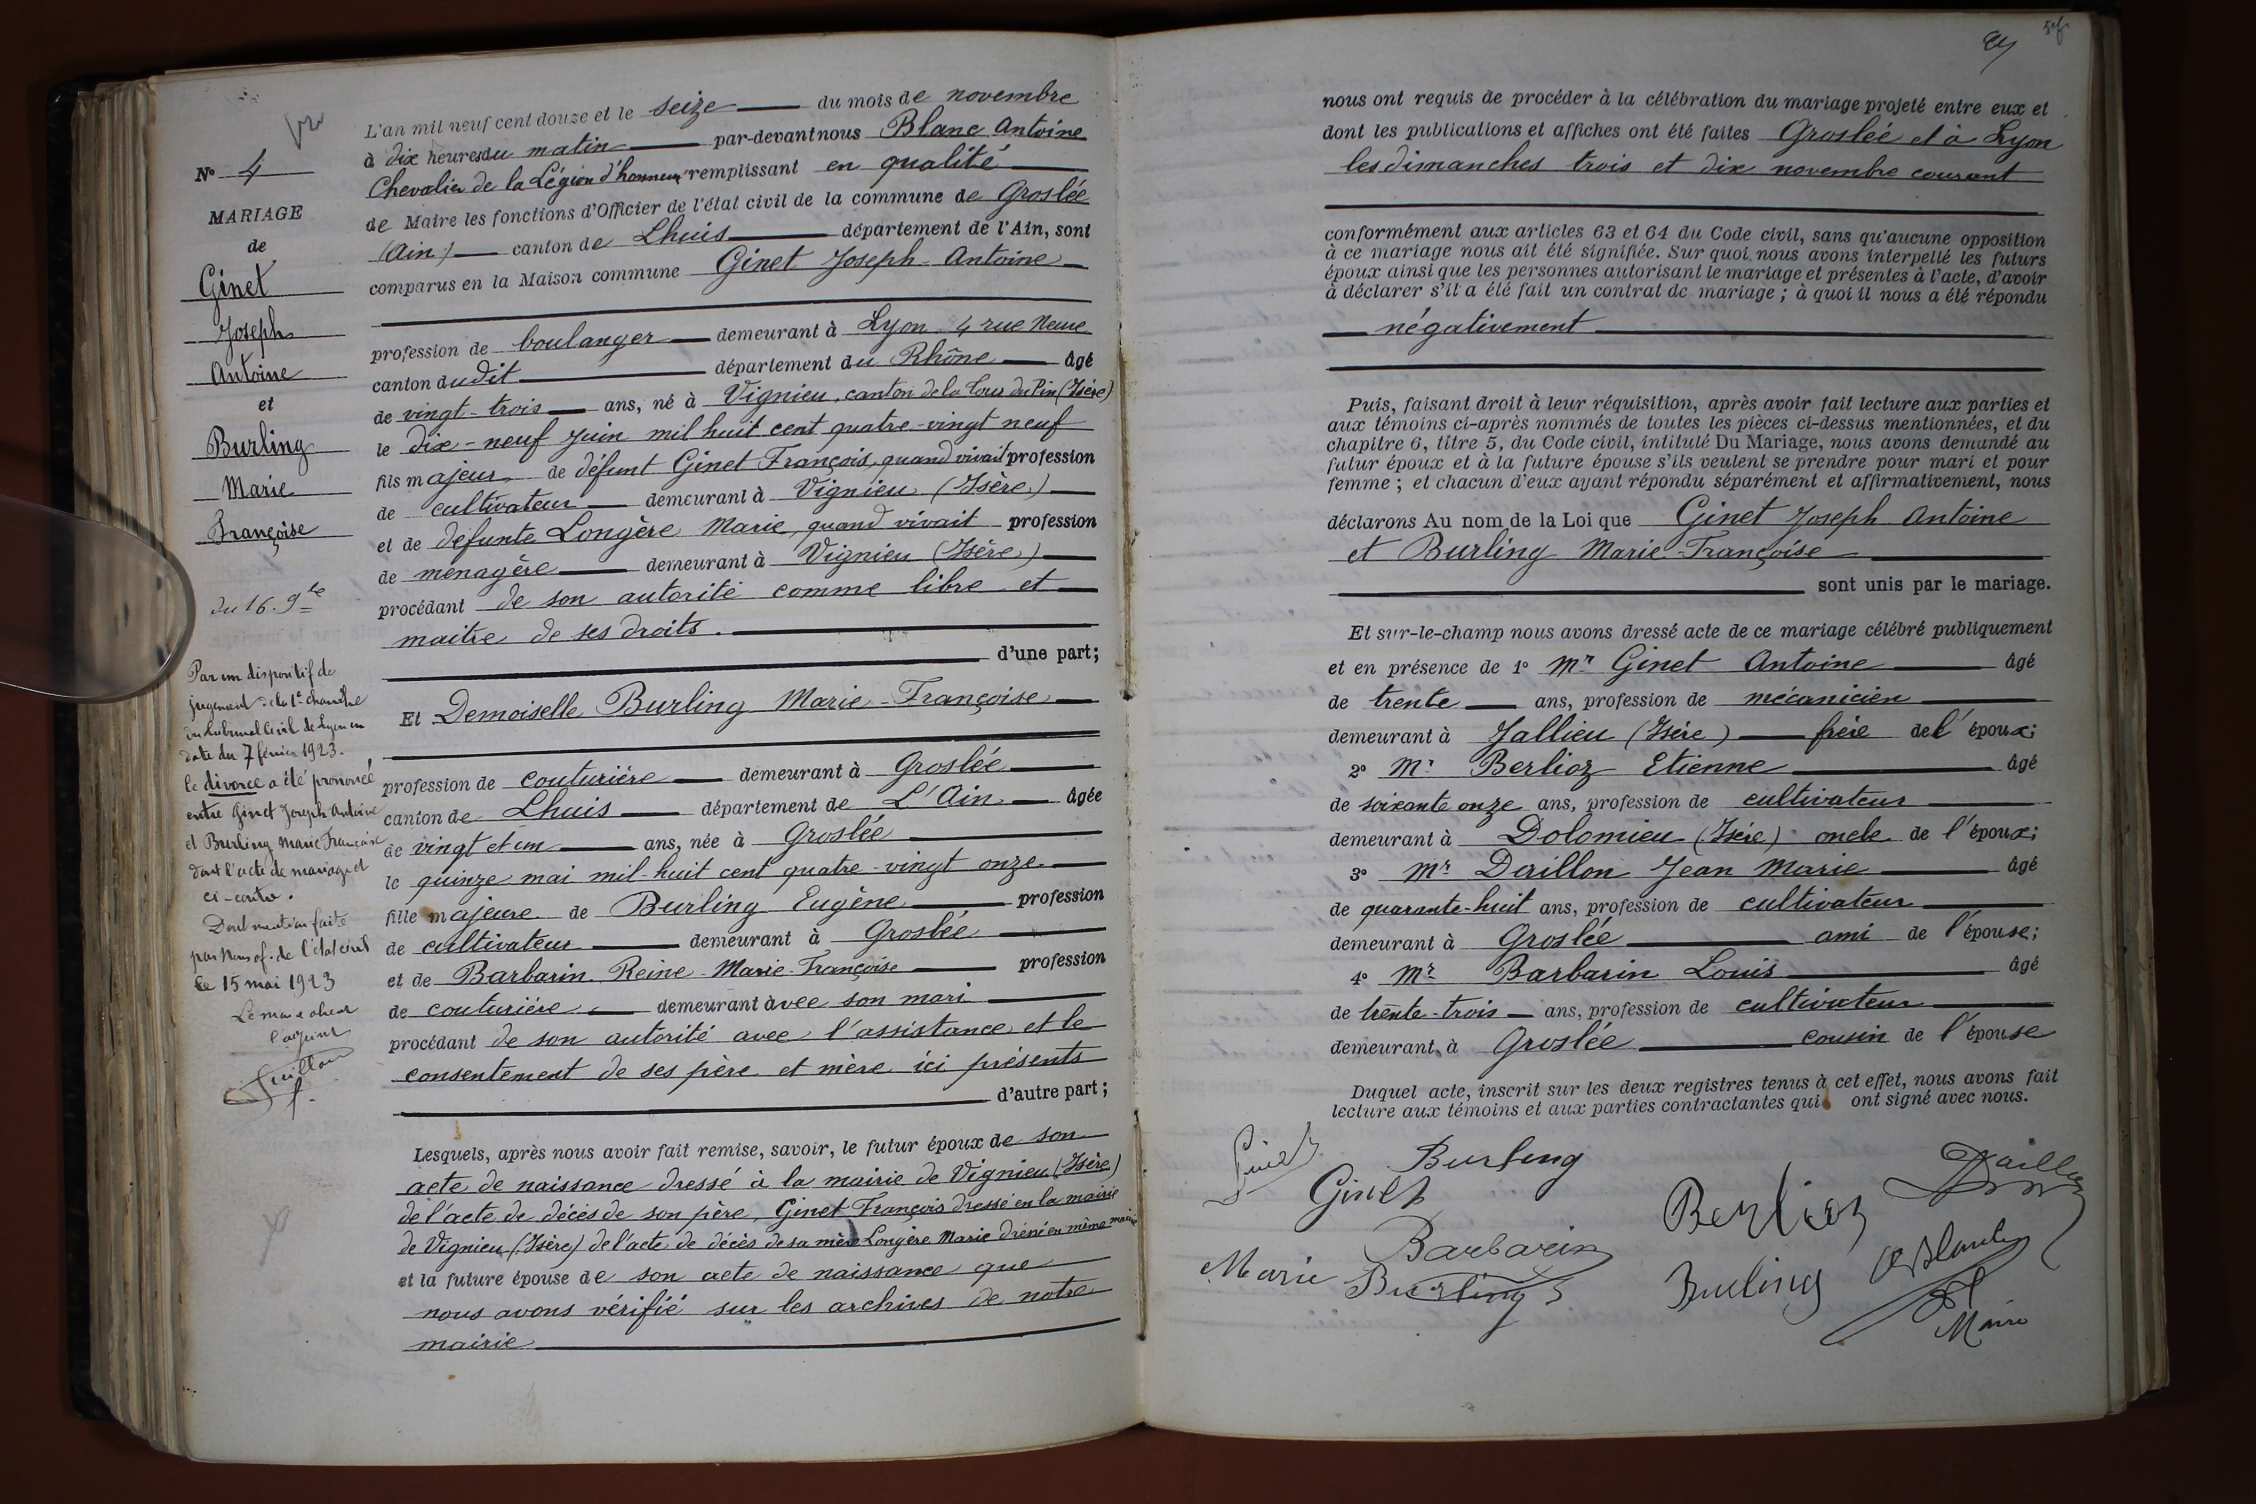 Nº 4
MARIAGE
de
Ginet
Joseph
Antoine
et
Burling
Marie
Françoise
du 16. 9bre
Par un dispositif de
jugement de la 1e chambre
du tribunal Civil de Lyon en
date du 7 février 1923.
Le divorce a été prononcé
entre Ginet Joseph Antoine
et Burling Marie Françoise
dont l'acte de mariage est
ci-contre.
Dont mention faite
par Nous of. de l'état civil
le 15 mai 1923
l'adjoint
L'an mil neuf cent douze et le seize du mois de novembre
à dix heures du matin par-devant nous Blanc Antoine
Chevalier de la Légion d'honneur remplissant en qualité
de Maire les fonctions d'Officier de l'état civil de la commune de Groslée
(Ain) canton de Lhuis département de l'Ain, sont
comparus en la Maison commune Ginet Joseph-Antoine
profession de boulanger demeurant à Lyon 4 rue Neuve
canton dudit département du Rhône âgé
de vingt-trois ans, né à Vignieu, canton de la Tour du Pin (Isère)
le dix-neuf juin mil huit cent quatre-vingt neuf
fils majeur de défunt Ginet François, quand vivait profession
de cultivateur demeurant à Vignieu (Isère)
et de défunte Longère Marie, quand vivait profession
de ménagère demeurant à Vignieu (Isère)
procédant de son autorité comme libre et
maitre de ses droits.
d'une part;
Et Demoiselle Burling Marie-Françoise
profession de couturière demeurant à Groslée
canton de Lhuis département de L'Ain âgée
de vingt et un ans, née à Groslée
le quinze mai mil-huit cent quatre-vingt onze
fille majeure de Burling Eugène profession
de cultivateur demeurant à Groslée
et de Barbarin Reine-Marie-Françoise profession
de couturière demeurant avec son mari
procédant de son autorité avec l'assistance et le
consentement de ses père et mère ici présents
d'autre part;
Lesquels, après nous avoir fait remise, savoir, le futur époux de son
acte de naissance dressé à la mairie de Vignieu (Isère)
de l'acte de décès de son père, Ginet François dressé en la mairie
de Vignieu (Isère) de l'acte de décès de sa mère Longère Marie dressé en même mairie
et la future épouse de son acte de naissance que
nous avons vérifié sur les archives de notre
mairie
nous ont requis de procéder à la célébration du mariage projeté entre eux et
dont les publications et affiches ont été faites Groslée et à Lyon
les dimanches trois et dix novembre courant
conformément aux articles 63 et 64 du Code civil, sans qu'aucune opposition
à ce mariage nous ait été signifiée. Sur quoi, nous avons interpellé les futurs
époux ainsi que les personnes autorisant le mariage et présentes à l'acte, d'avoir
à déclarer s'il a été fait un contrat de mariage ; à quoi il nous a été répondu
négativement
Puis, faisant droit à leur réquisition, après avoir fait lecture aux parties et
aux témoins ci-après nommés de toutes les pièces ci-dessus mentionnées, et du
chapitre 6, titre 5, du Code civil, intitulé Du Mariage, nous avons demandé au
futur époux et à la future épouse s'ils veulent se prendre pour mari et pour
femme ; et chacun d'eux ayant répondu séparément et affirmativement, nous
déclarons Au nom de la Loi que Ginet Joseph Antoine
et Burling Marie-Françoise
sont unis par le mariage.
Et sur-le-champ nous avons dressé acte de ce mariage célébré publiquement
et en présence de 1º Mr Ginet Antoine âgé
de trente ans, profession de mécanicien
demeurant à Jallieu (Isère) frère de l'époux;
2º Mr Berlioz Etienne âgé
de soixante onze ans, profession de cultivateur
demeurant à Dolomieu (Isère) oncle de l'époux;
3º Mr Daillon Jean Marie âgé
de quarante-huit ans, profession de cultivateur
demeurant à Groslée ami de l'épouse;
4º Mr Barbarin Louis âgé
de trente-trois ans, profession de cultivateur
demeurant à Groslée cousin de l'épouse
Duquel acte, inscrit sur les deux registres tenus à cet effet, nous avons fait
lecture aux témoins et aux parties contractantes qui ont signé avec nous.
Ginet Burling
Ginet
Berlioz Daillon
Barbarin
Marie Burling
Burling
Maire